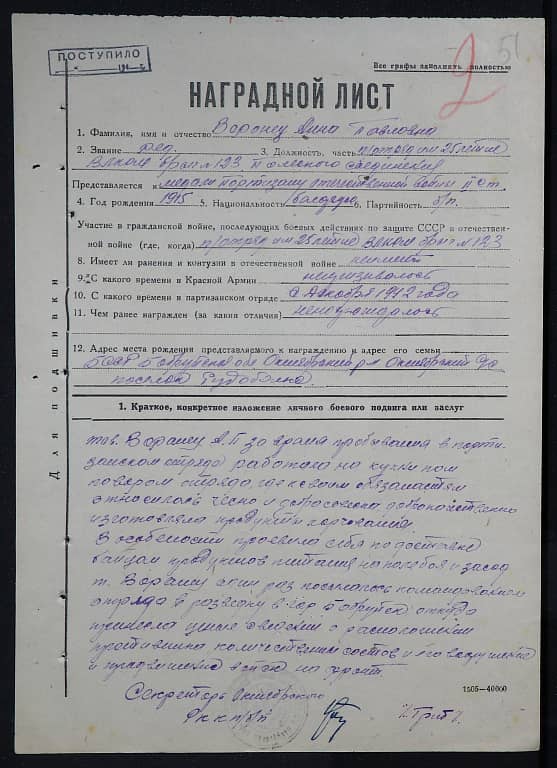 ПОСТУПИЛО
51
Все графы заполнять полностью
2
НАГРАДНОЙ ЛИСТ
1. Фамилия, имя и отчество Воранец Анна Павловна
2. Звание ряд. 3. Должность, часть п/отряд им 25 летие
влксм бриг № 123 Полеского соединения
Представляется к медали партизану отечественной войны II ст.
4. Год рождения 1915 5. Национальность 6. Партийность б/п.
Участие в гражданской войне, последующих боевых действиях по защите СССР в отечест-
венной войне (где, когда) п/отряд им 25 летие влксм бриг № 123
8. Имеет ли ранения и контузии в отечественной войне неимеет
9. С какого времени в Красной Армии
10. С какого времени в партизанском отряде с декабря 1942 года
11. Чем ранее награжден (за какия отличия)
12. Адрес места рождения представляемого к награждению и адрес его семьи
БССР Бобруйская обл Октябрьский р-н Октябрьский с/с
поселок Рудобелка
Для подшивки
1. Краткое, конкретное изложение личного боевого подвига или заслуг
тов. Воранец А.П за время пребывания в парти-
занском отряде работала на кухни пом
поваром отряда, где к своим обязаностям
относилась чесно и
изготовляла продукты
В особености проевила себя по доставке
байцам продуктов питания на поле боя и засад
т. Воранец один раз посылалась командованием
отряда в разведку в гор Бобруйск откуда
принесла ценые сведения о расположении
противника количественом состов и его вооружение
и продвижение на фронт.
1505—40000
Секретарь Октябрьского
РК КП/б/Б